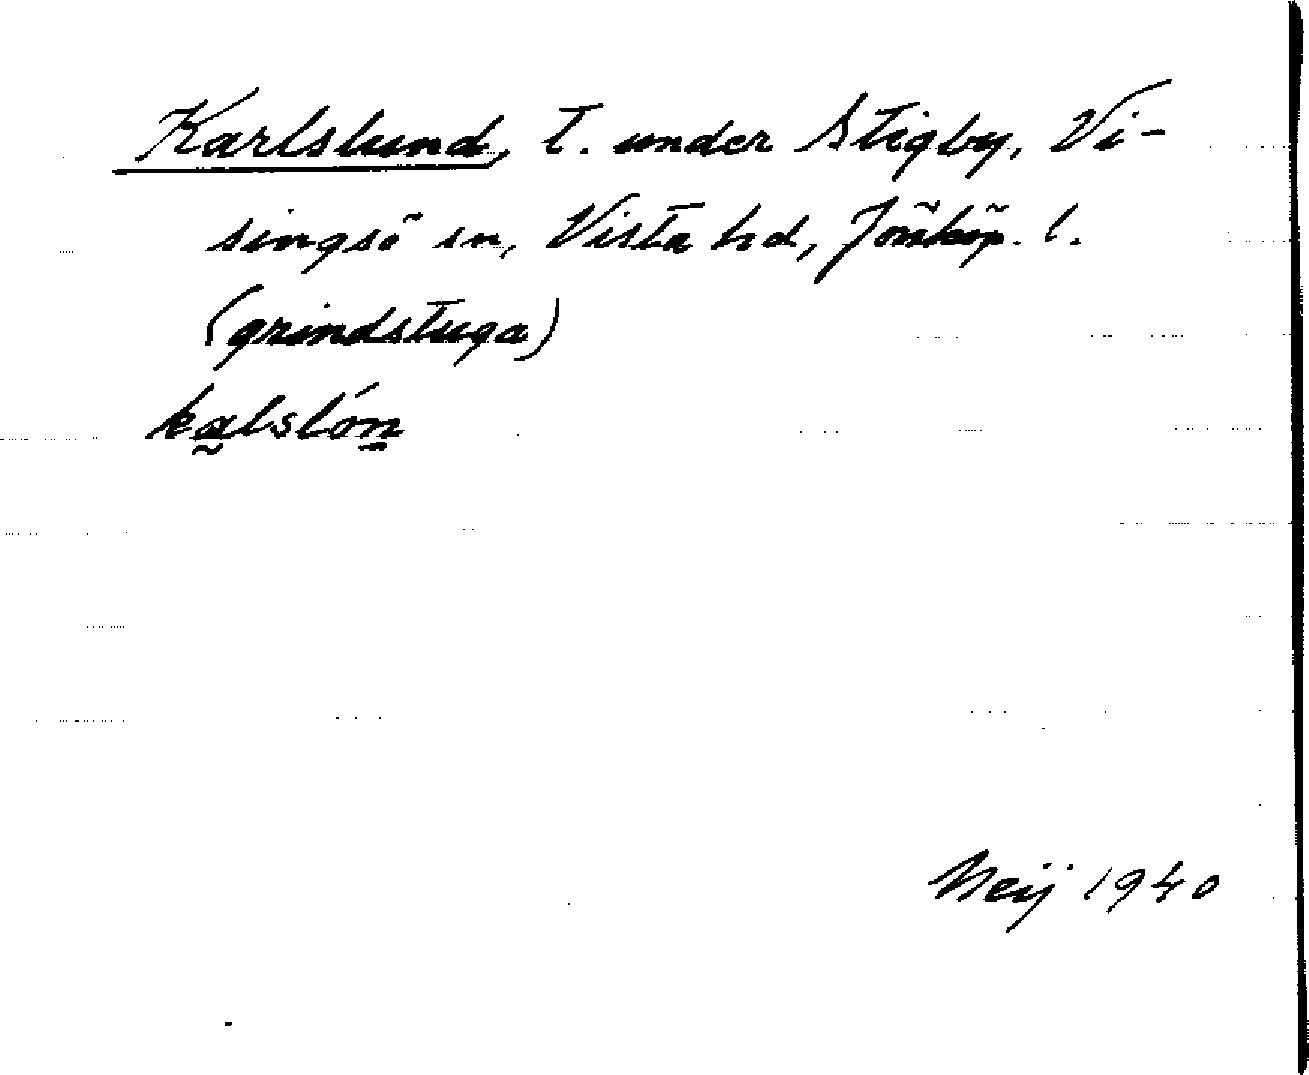 Karlslund, t. under Stigby, Vi-
singsö sn, Vista hd, Jönköp. l.
(grindstuga)
kalslón
Meij 1940